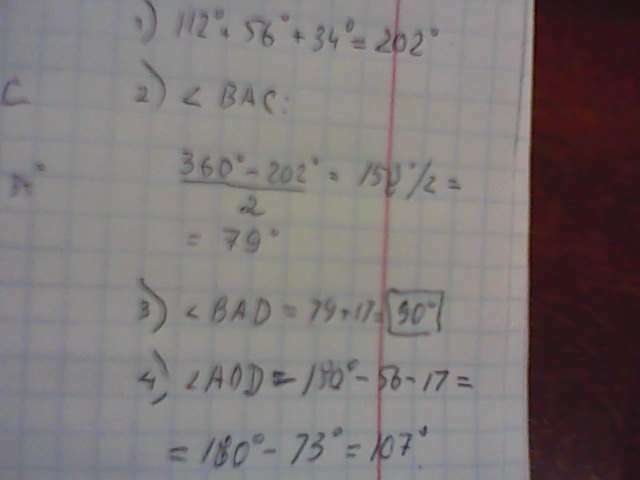 1) 112° + 56° + 34° = 202°
C
2) < BAC:
360° - 202° / 2 = 158°/2 =
= 79°
3) < BAD = 79 + 17 = 90°
4) < AOD = 180° - 56 - 17 =
= 180° - 73° = 107°